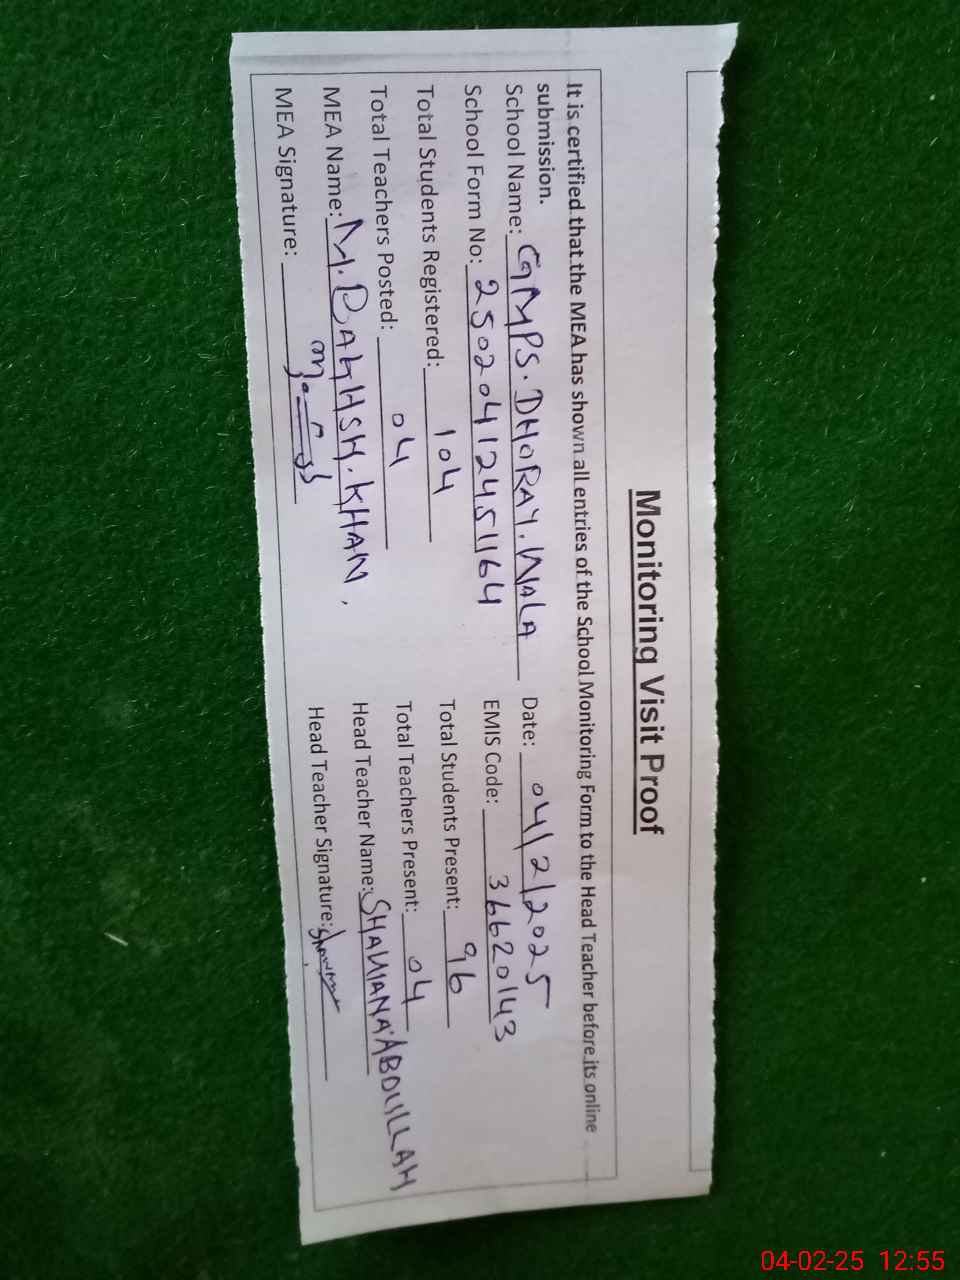 Monitoring Visit Proof
It is certified that the MEA has shown all entries of the School Monitoring Form to the Head Teacher before its online
submission.
School Name: GMPS. DHORAY. WALA Date: 04/2/2025
School Form No: 25020412451164 EMIS Code: 36620143
Total Students Registered: 104 Total Students Present: 96
Total Teachers Posted: 04 Total Teachers Present: 04
MEA Name: M. KHAN. Head Teacher Name: ABDULLAH
MEA Signature: Head Teacher Signature:
04-02-25 12:55